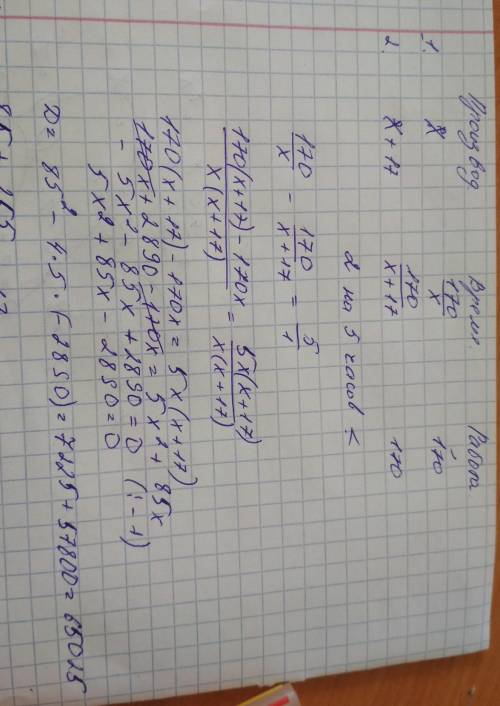 Производ Время. Работа
1. x 170/x 170
2. x + 17 170/(x+17) 170
2 на 5 часов <
170/x − 170/(x+17) = 5/1
(170(x+17) − 170x)/(x(x+17)) = 5x(x+17)/(x(x+17))
170(x+17) − 170x = 5x(x+17)
170x + 2890 − 170x = 5x² + 85x
− 5x² − 85x + 2890 = 0 (: −1)
5x² + 85x − 2890 = 0
D = 85² − 4·5·(−2890) = 7225 + 57800 = 65025